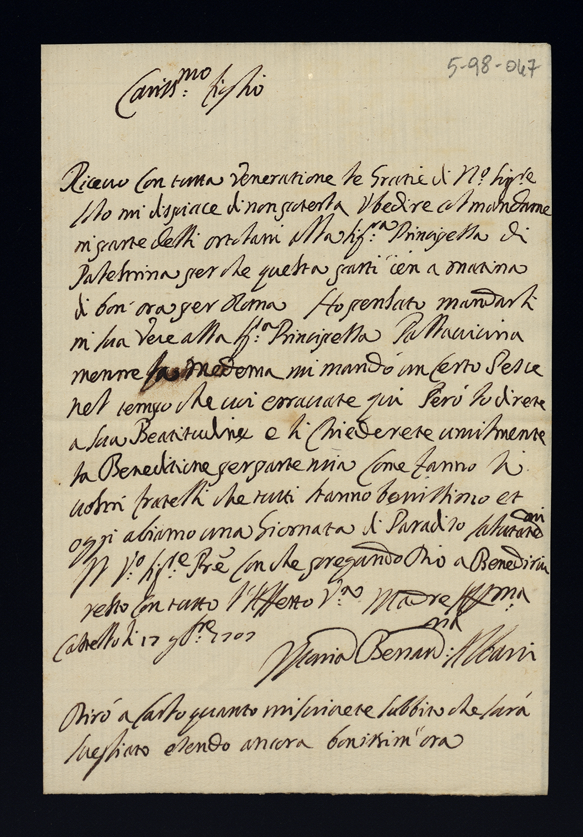 5-98-047
Cariss:mo figlio
Ricevo con tutta Veneratione le Gratie di N:o Sig:re
solo mi dispiace di non poterla Ubedire col mandarne
in parte delli ortolani alla Sig:ra Principessa di
Palestrina perche questa partì ieri a matina
di bon'ora per Roma Ho pensato mandarli
in sua vece alla Sig:ra Principessa Pallavicina
mentre la medema mi mandò un certo Pesce
nel tempo che voi erravate qui Però lo direte
a sua Beatitudine e li Chiederete umilmente
la Beneditione per parte mia Come fanno li
vostri fratelli che tutti stanno benissimo et
oggi abiamo una Giornata di Paradiso salutate
V:o Sig:re Pre Con che pregando Dio a Benedirvi
resto con tutto l'Affetto V:ra Madre Aff:ma
Castello li 17 9bre 1707
Maria Bernard:na Albani
Dirò a Carlo quanto mi scrivete subbito che sarà
svegliato essendo ancora bonissim'ora